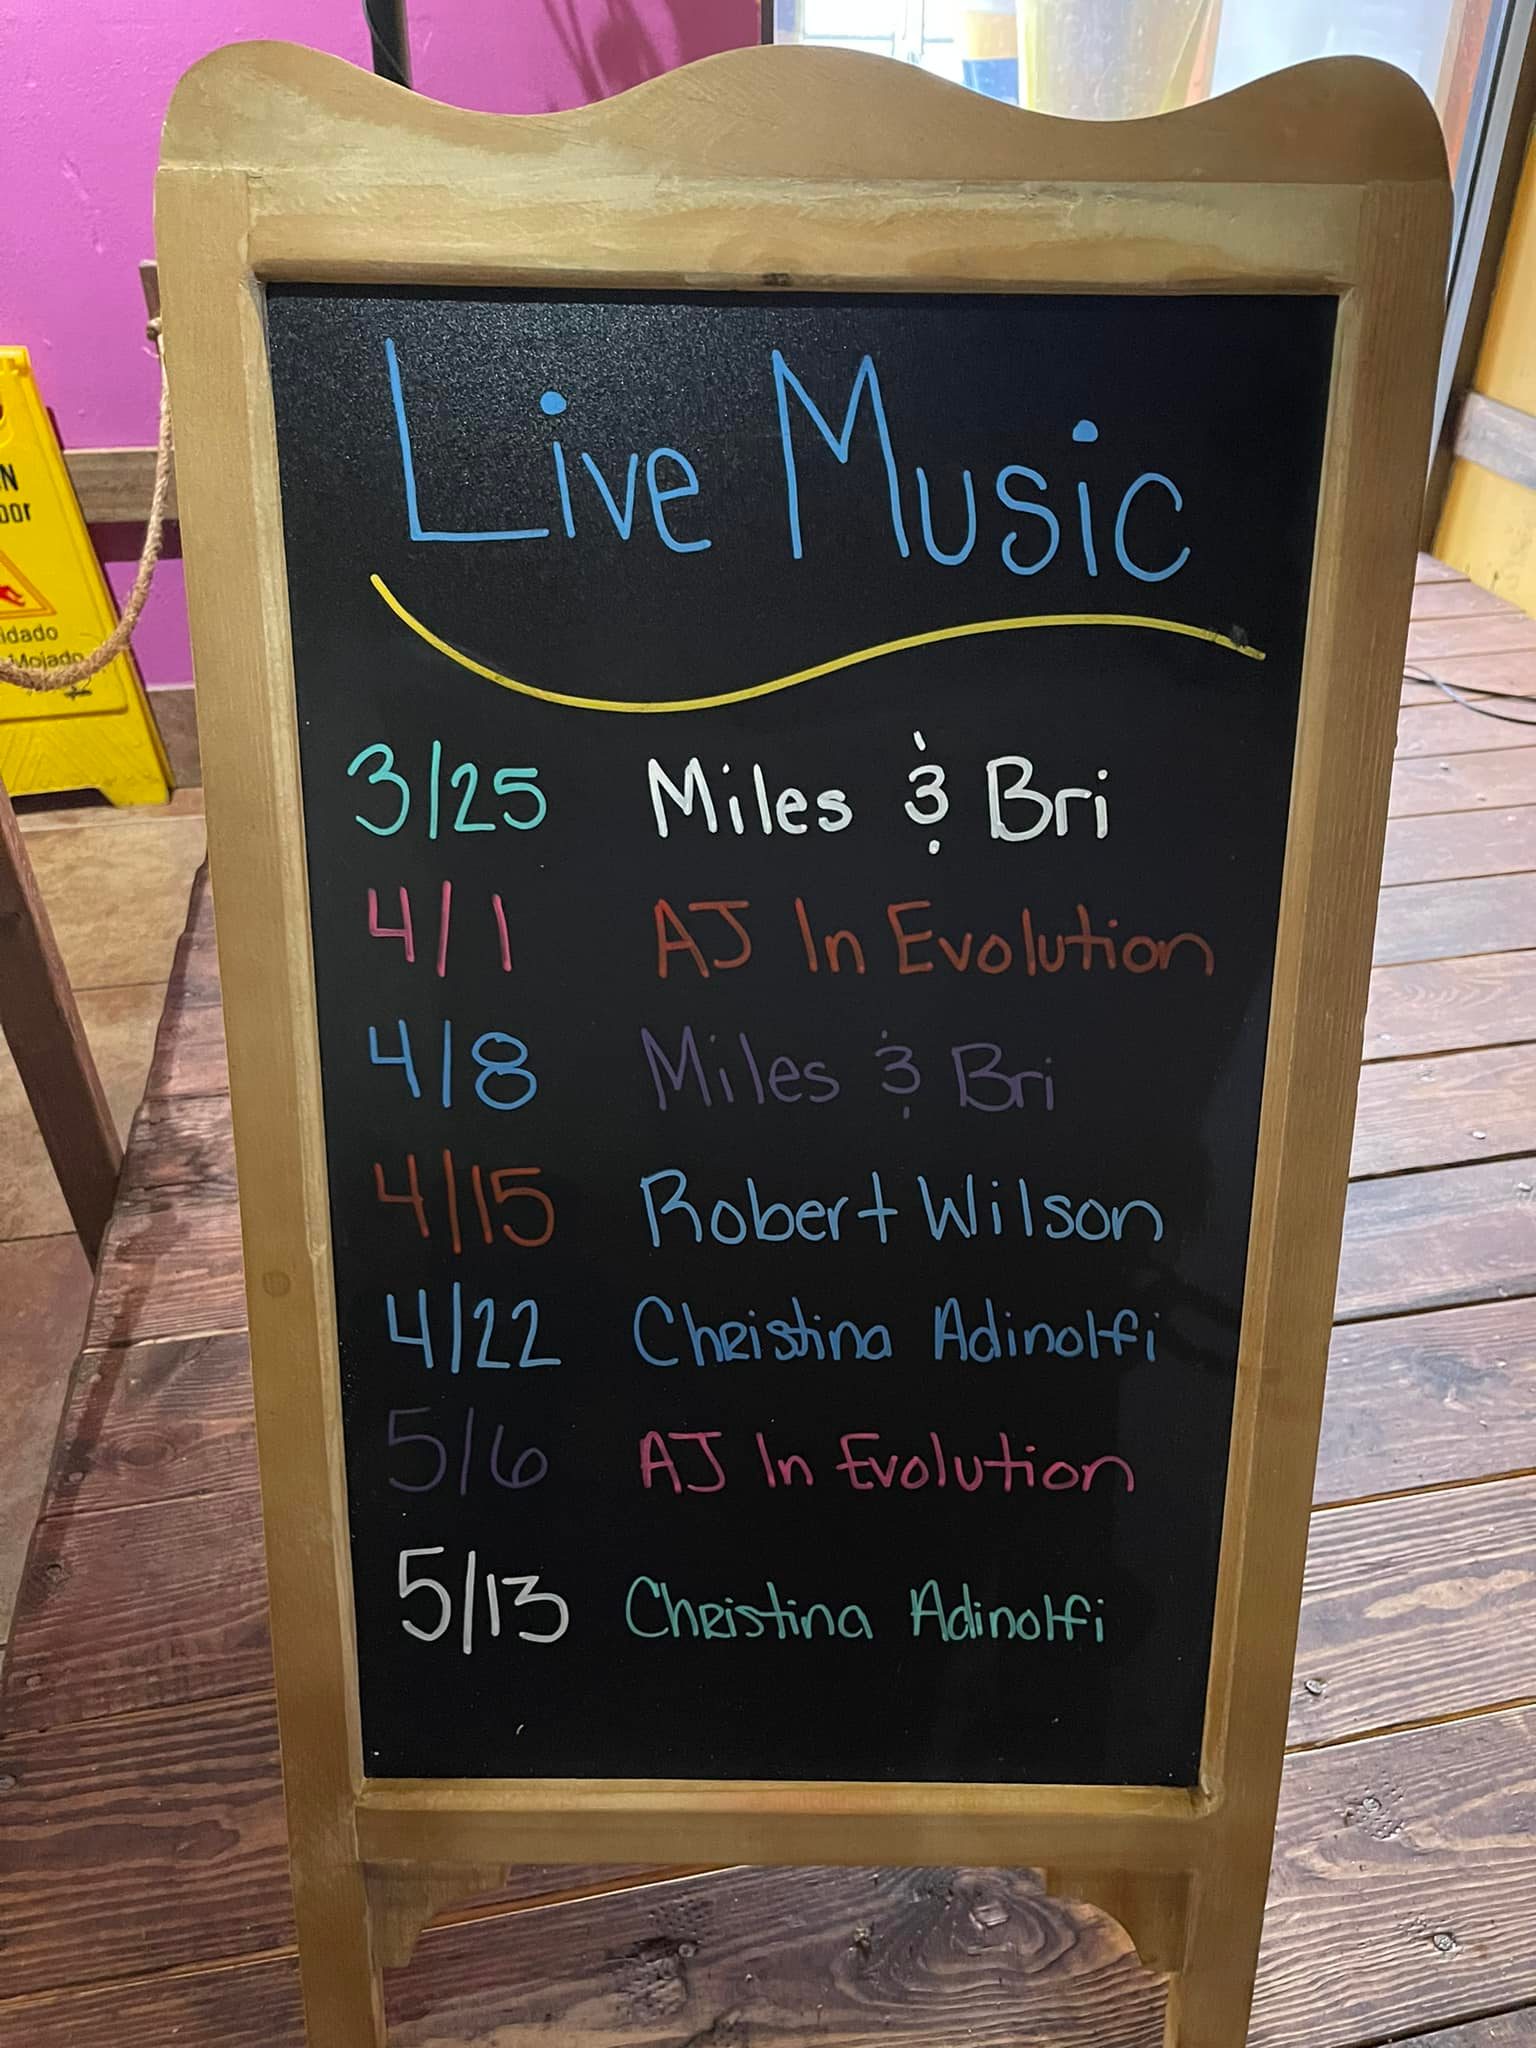 Live Music
3/25 Miles & Bri
4/1 AJ In Evolution
4/8 Miles & Bri
4/15 Robert Wilson
4/22 Christina Adinolfi
5/6 AJ In Evolution
5/13 Christina Adinolfi
Mojado